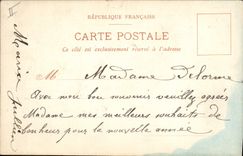 RÉPUBLIQUE FRANÇAISE
CARTE POSTALE
Ce côté est exclusivement réservé à l'adresse
M Madame Delorme
Avec mon bon souvenir veuillez agréer
Madame mes meilleurs souhaits de
bonheur pour la nouvelle année